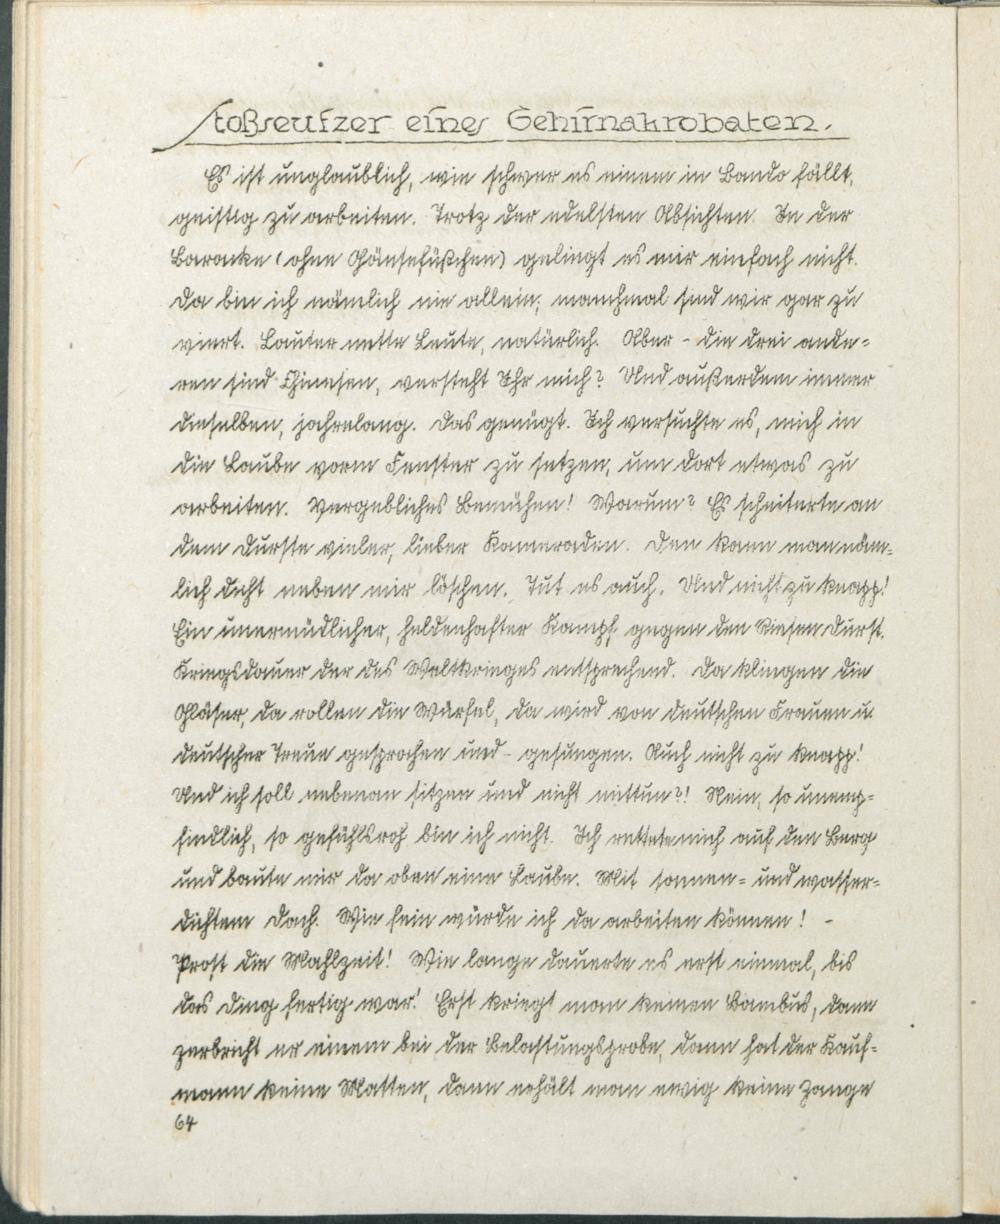 Stoßseufzer eines Gehirnakrobaten.
Es ist unglaublich, wie schwer es einem in Bando fällt,
geistig zu arbeiten. Trotz der edelsten Absichten. In der
Baracke (ohne Gänsefüßchen) gelingt es mir einfach nicht.
Da bin ich nämlich nie allein; manchmal sind wir gar zu
viert. Lauter nette Leute, natürlich. Aber - die drei ande=
ren sind Chinesen, versteht Ihr mich? Und außerdem immer
dieselben, jahrelang. Das genügt. Ich versuchte es, mich in
die Laube vorm Fenster zu setzen, um dort etwas zu
arbeiten. Vergebliches Bemühen! Warum? Es scheiterte an
dem Durste vieler, lieber Kameraden. Den kann man näm=
lich dicht neben mir löschen. Tut es auch. Und nicht zu knapp!
Ein unermüdlicher, heldenhafter Kampf gegen den Riesendurst.
Kriegsdauer der des Weltkrieges entsprechend. Da klingen die
Gläser, da rollen die Würfel, da wird von deutschen Frauen u.
deutscher Treue gesprochen und - gesungen. Auch nicht zu knapp!
Und ich soll nebenan sitzen und nicht mittun?! Nein, so unemp=
findlich, so gefühlsroh bin ich nicht. Ich rettete mich auf den Berg
und baute mir da oben eine Laube. Mit sonnen= und wasser=
dichtem Dach. Wie fein würde ich da arbeiten können! -
Prost die Mahlzeit! Wie lange dauerte es erst einmal, bis
das Ding fertig war! Erst kriegt man keinen Bambus, dann
zerbricht er einem bei der Belastungsprobe, dann hat der Kauf=
mann keine Matten, dann erhält man ewig keine Zange
64